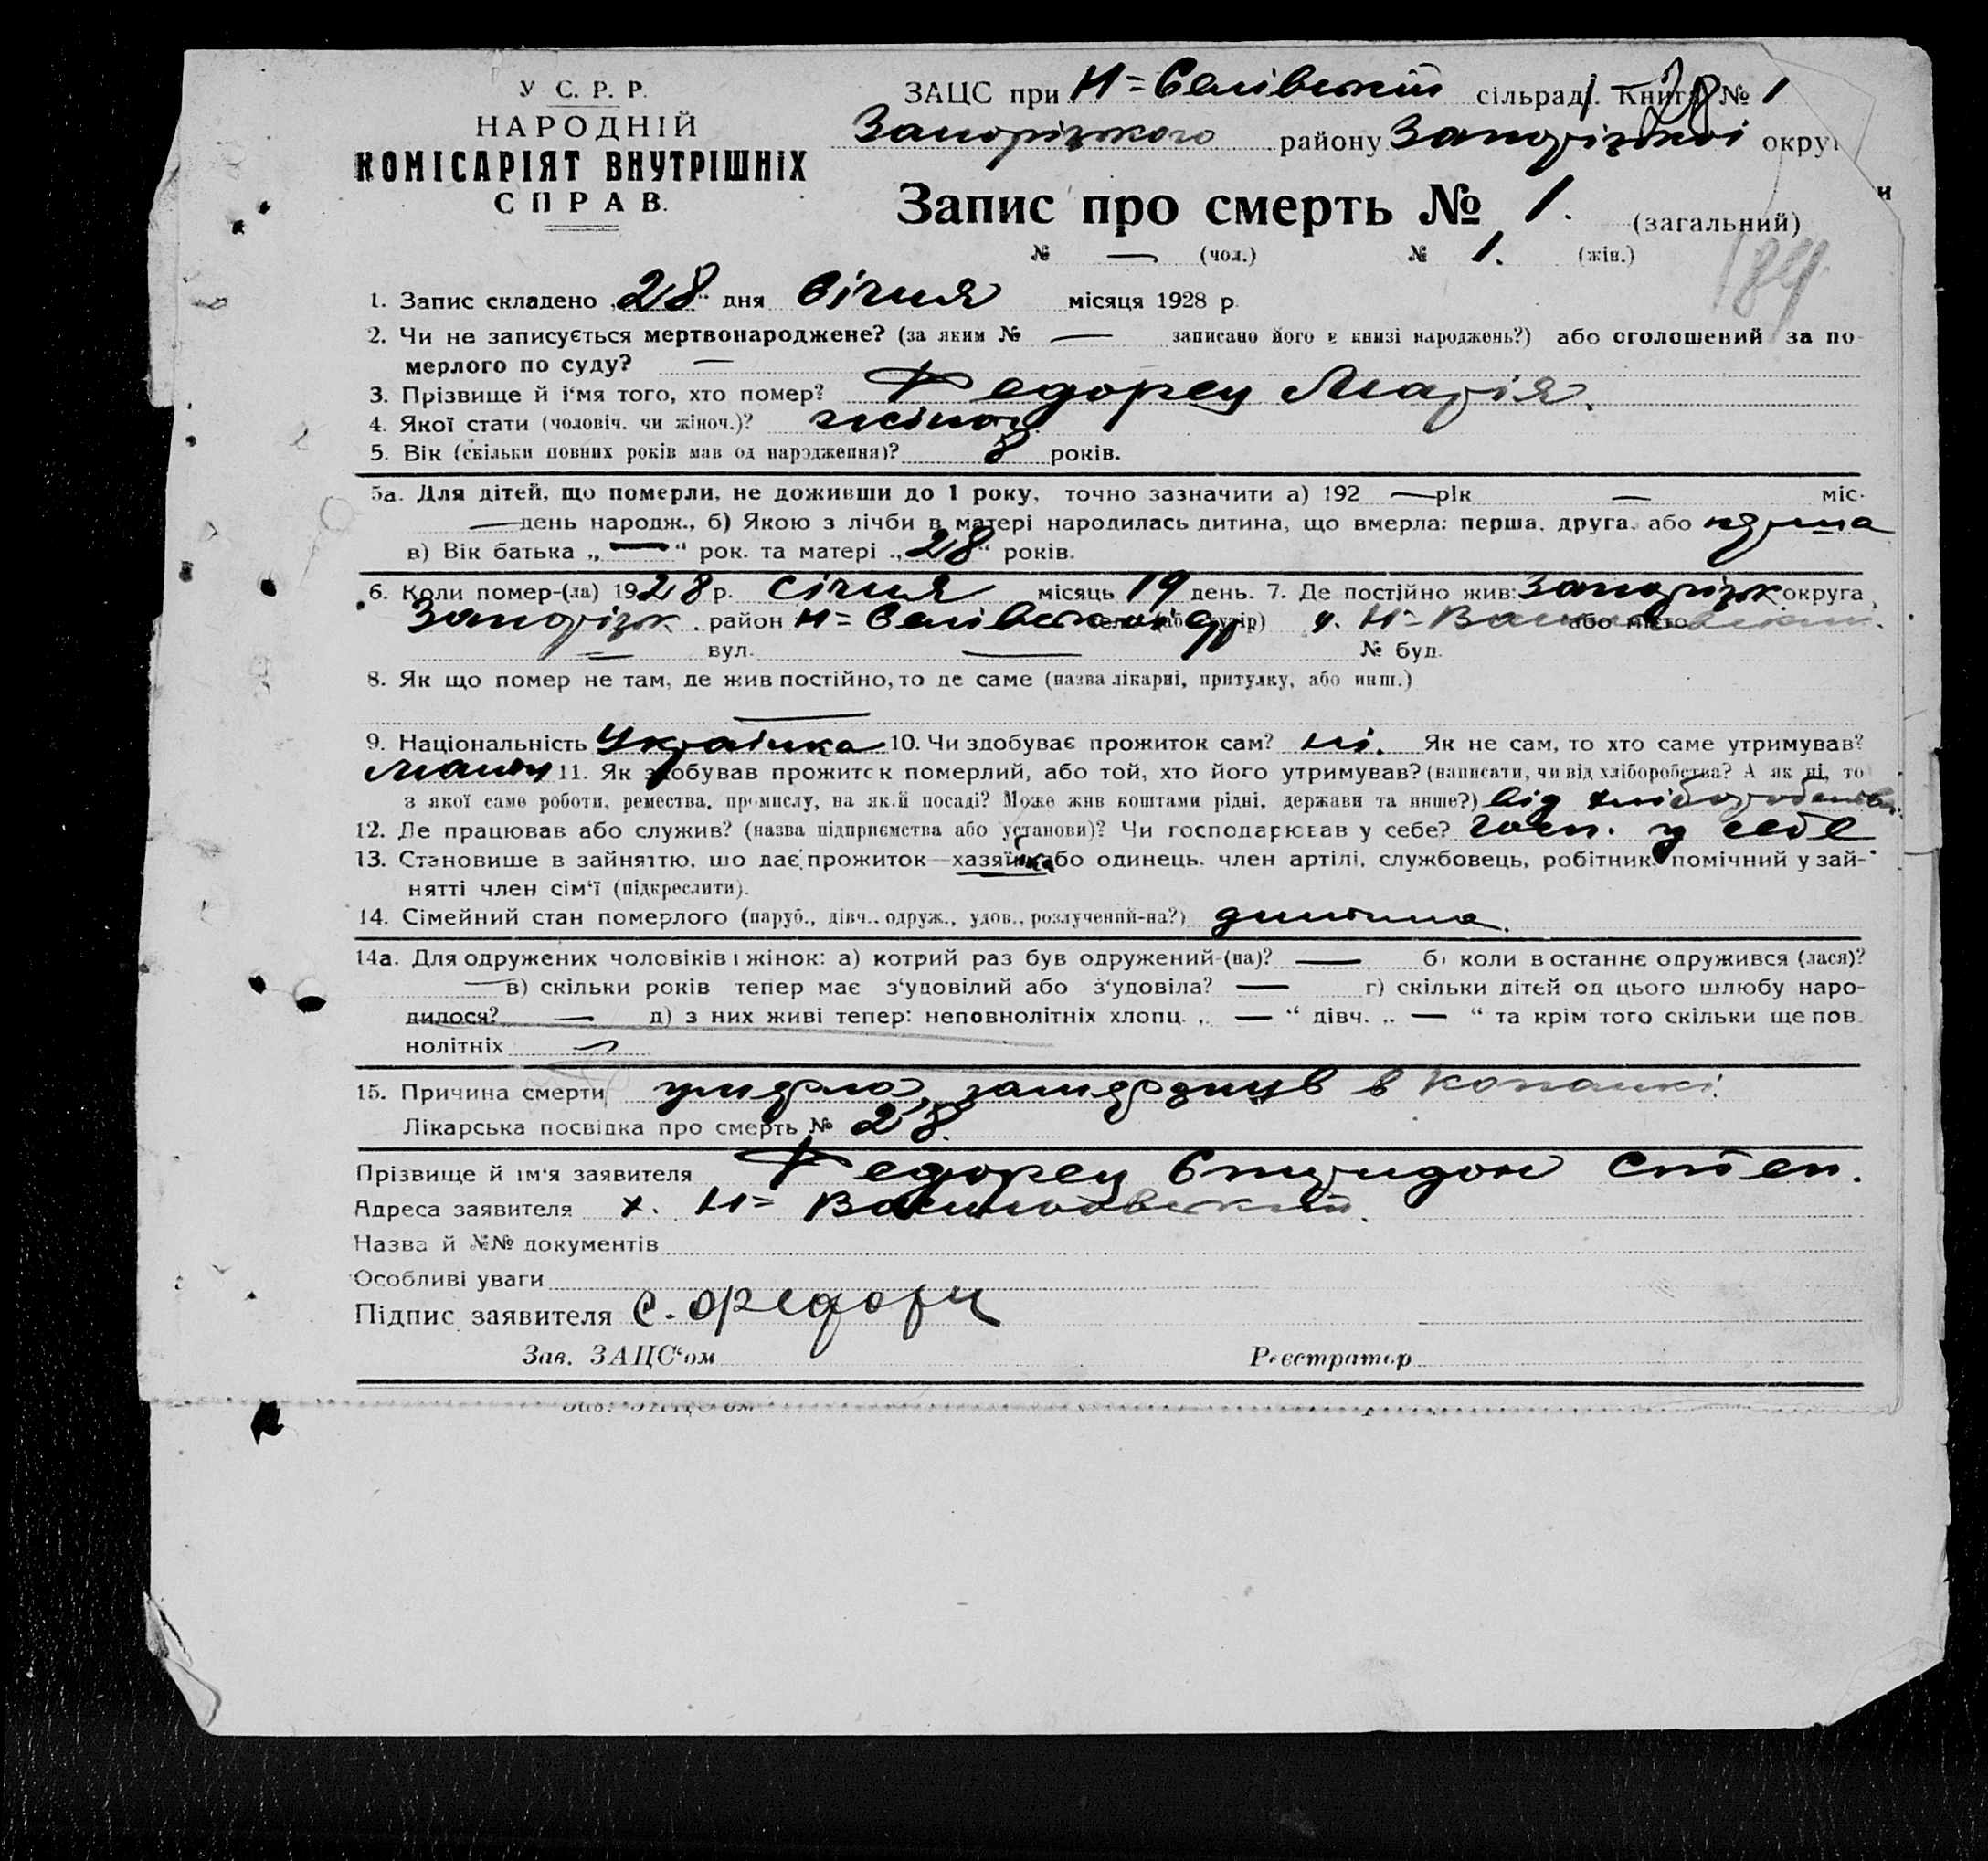 У С. Р. Р.
НАРОДНІЙ
КОМІСАРІЯТ ВНУТРІШНІХ
СПРАВ.
ЗАЦС при Н=Селівській сільраді. Книга № 1
28
Запорізького району Запорізької округи
Запис про смерть № 1. (загальний)
№ — (чол.) № 1. (жін.)
184
1. Запис складено „28“ дня Січня місяця 1928 р.
2. Чи не записується мертвонароджене? (за яким № — записано його в книзі народжень?) або оголошений за по-
мерлого по суду? —
3. Прізвище й і'мя того, хто помер? Федорец Марія.
4. Якої стати (чоловіч. чи жіноч.)? жіноч
5. Вік (скільки повних років мав од народження)? 8 років.
5а. Для дітей, що померли, не доживши до 1 року, точно зазначити а) 192 — рік — міс.
— день народж., б) Якою з лічби в матері народилась дитина, що вмерла: перша, друга, або
в) Вік батька „—“ рок. та матері „28“ років.
6. Коли помер-(ла) 1928 р. Січня місяць 19 день. 7. Де постійно жив: Запорізьк округа
Запорізьк. район Н=Селівської с/р х. Н=Василівський.
— вул. — № буд.
8. Як що помер не там, де жив постійно, то де саме (назва лікарні, притулку, або инш.)
—
9. Національність Українка 10. Чи здобуває прожиток сам? ні. Як не сам, то хто саме утримував?
Мати 11. Як здобував прожиток померлий, або той, хто його утримував? (написати, чи від хліборобства? А як ні, то
з якої саме роботи, ремества, промислу, на якій посаді? Може жив коштами рідні, держави та инше?) від хліборобства.
12. Де працював або служив? (назва підприємства або установи)? Чи господарював у себе? госп. у себе
13. Становище в зайняттю, що дає прожиток—хазяїн або одинець, член артілі, службовець, робітник, помічний у зай-
нятті член сім'ї (підкреслити).
14. Сімейний стан померлого (паруб., дівч., одруж., удов., розлучений-на?) дитина.
14а. Для одружених чоловіків і жінок: а) котрий раз був одружений-(на)? — б) коли в останнє одружився (лася)?
— в) скільки років тепер має з'удовілий або з'удовіла? — г) скільки дітей од цього шлюбу наро-
дилося? — д) з них живі тепер: неповнолітніх хлопц. „ — “ дівч. „ — “ та крім того скільки ще пов-
нолітніх —
15. Причина смерти умерла, замерзнув в копанкі.
Лікарська посвідка про смерть № 28.
Прізвище й ім'я заявителя Федорец Спиридон Степ.
Адреса заявителя х. Н=Василовский.
Назва й №№ документів
Особливі уваги
Підпис заявителя С. Федорец
Зав. ЗАЦС'ом Реєстратор